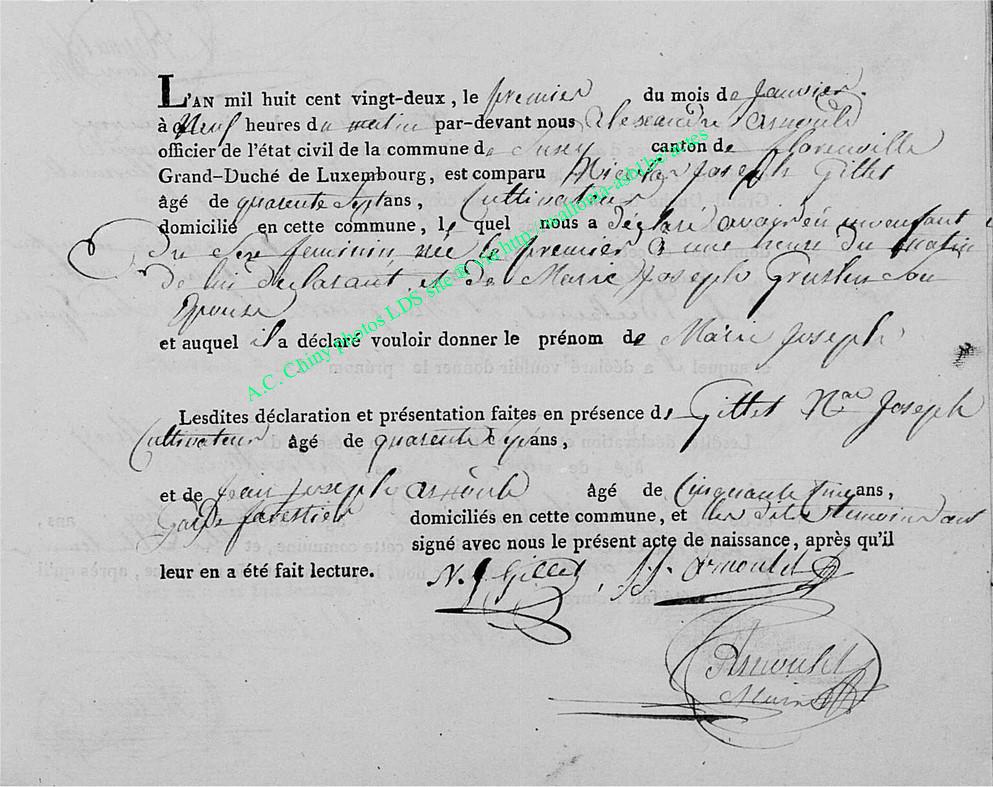 L'AN mil huit cent vingt-deux, le premier du mois de janvier
à Neuf heures du matin par-devant nous alexandre arnould
officier de l'état civil de la commune de Suxy canton de florenville
Grand-Duché de Luxembourg, est comparu Nicolas Joseph Gillet
âgé de quarente sept ans, Cultivateur
domicilié en cette commune, le quel nous a déclaré avoir eu un enfant
Du sexe feminin née le premier à une heure du matin
De lui declarant et de Marie Joseph son
Epouse
et auquel il a déclaré vouloir donner le prénom de Marie Joseph
Lesdites déclaration et présentation faites en présence de Gillet Nas Joseph
Cultivateur âgé de quarente sept ans,
et de jean joseph arnould âgé de Cinquante ans,
Garde forestier domiciliés en cette commune, et les dits temoins ont
signé avec nous le présent acte de naissance, après qu'il
leur en a été fait lecture.
N. J. Gillet, J. J. arnould
Arnould
Maire
A.C. Chiny photos LDS site @ via http://wallonia-asbl.be/actes